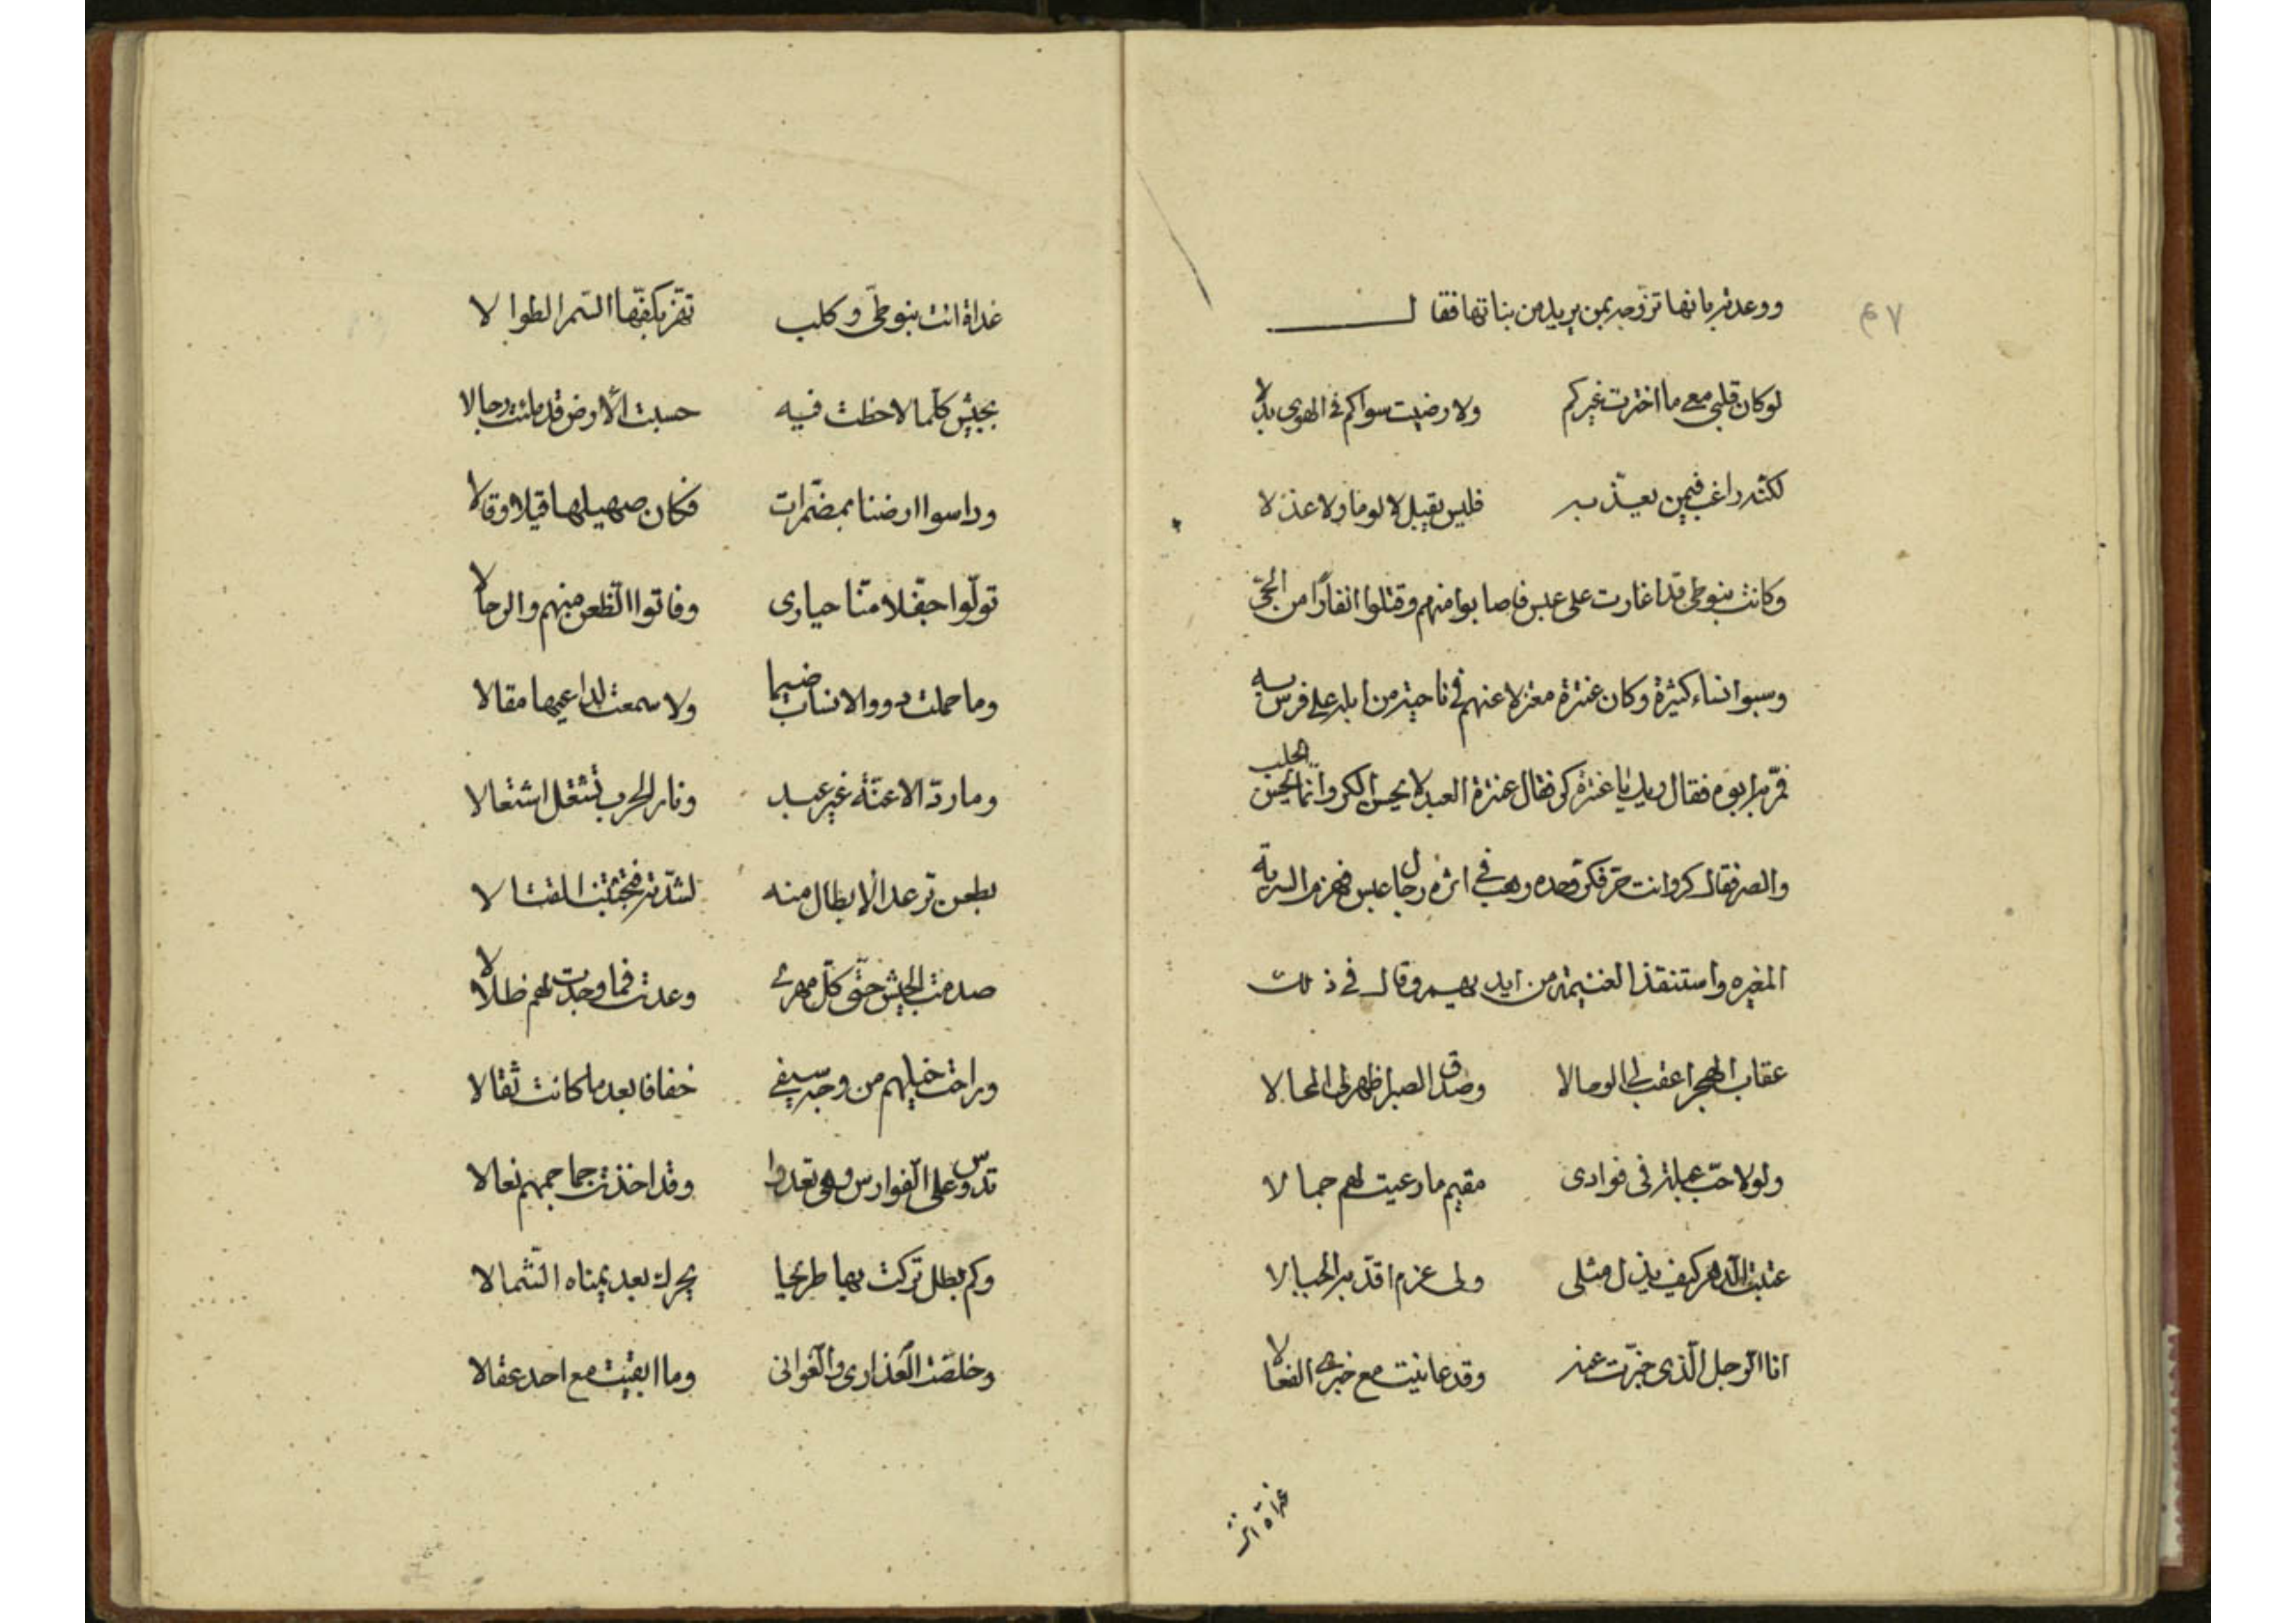 ووعدته بانها تزوجه بمن يريد من بناتها فقال
لوكان قلبى معى ما اخترت غيركم ولا رضيت سواكم فى الهوى بدلا
لكنه راغب فيمن يعذّبه فليس يقبل لا لوما ولا عذلا
وكانت بنو طى قد اغارت على عبس فاصابوا منهم وقتلوا انفارًا من الحىّ
وسبوا نساء كثيرة وكان عنترة معتزلا عنهم فى ناحية من ابله على فرسه
فمرّ به ابوه فقال ويلك يا عنترة كر فقال عنترة العبد لا يحسن الكر وانّما يحسن الحلب
والصر فقال كر وانت حرّ فكرّ وحده وهب فى اثره رجال عبس فهزم السرية
المغيره واستنقذ الغنيمة من ايديهم وقال فى ذلك
عقاب الهجر اعقب لى الوصالا وصدق الصبر اظهر لى المحالا
ولولا حبّ عبلة فى فوادى مقيم ما رعيت لهم جمالا
عتبت الدّهر كيف يذل مثلى ولى عزم اقدّ به الجبالا
انا الرّجل الّذى خبّرت عنه وقد عانيت مع خبرى الفعالا
غداة اتت
٤٧
غداة اتت بنو طىّ وكلب تهزّ بكفّها السّمر الطوالا
بجيش كلّما لاحظت فيه حسبت الأرض قد ملئت رجالا
وداسوا ارضنا بمضمّرات فكان صهيلها قيلا وقالا
تولّوا جفّلا منّا حيارى وفاتوا الظّعن منهم والرحالا
وما حملت ذوو الانساب ضيما ولا سمعت لداعيها مقالا
وما ردّ الاعنّة غير عبد ونار الحرب تشتعل اشتعالا
بطعن ترعد الأبطال منه لشدّته فتجتنب القتالا
صدمت الجيش حتّى كلّ مهرى وعدت فما وجدت لهم ظلالا
وراحت خيلهم من وجه سيفى خفافا بعد ما كانت ثقالا
تدوس على الفوارس وهى تعدوا وقد اخذت جماجمهم نعالا
وكم بطل تركت بها طريحا يحرك بعد يمناه الشّمالا
وخلصت العذارى والغوانى وما ابقيت مع احد عقالا